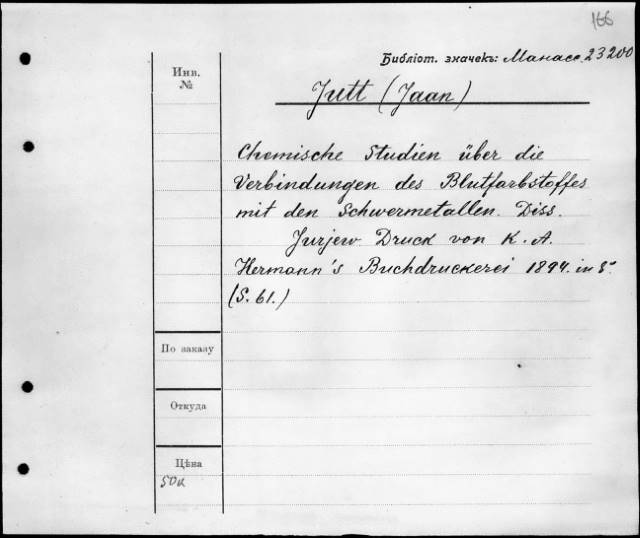 166
Библіот. значекъ: Манасс. 23200
Инв.
№
Jutt (Jaan)
Chemische Studien über die
Verbindungen des Blutfarbstoffes
mit den Schwermetallen. Diss.
Jurjew. Druck von K. A.
Hermann's Buchdruckerei 1894. in 8°.
(S. 61.)
По заказу
Откуда
Цѣна
50к